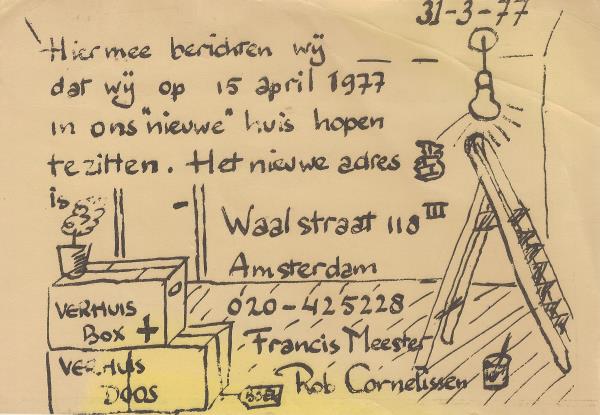 31-3-77
Hiermee berichten wij
dat wij op 15 april 1977
in ons "nieuwe" huis hopen
te zitten. Het nieuwe adres
is...
Waalstraat 118 III
Amsterdam
020-425228
Francis Meester
Rob Cornelissen
VERHUIS
BOX +
VERHUIS
DOOS